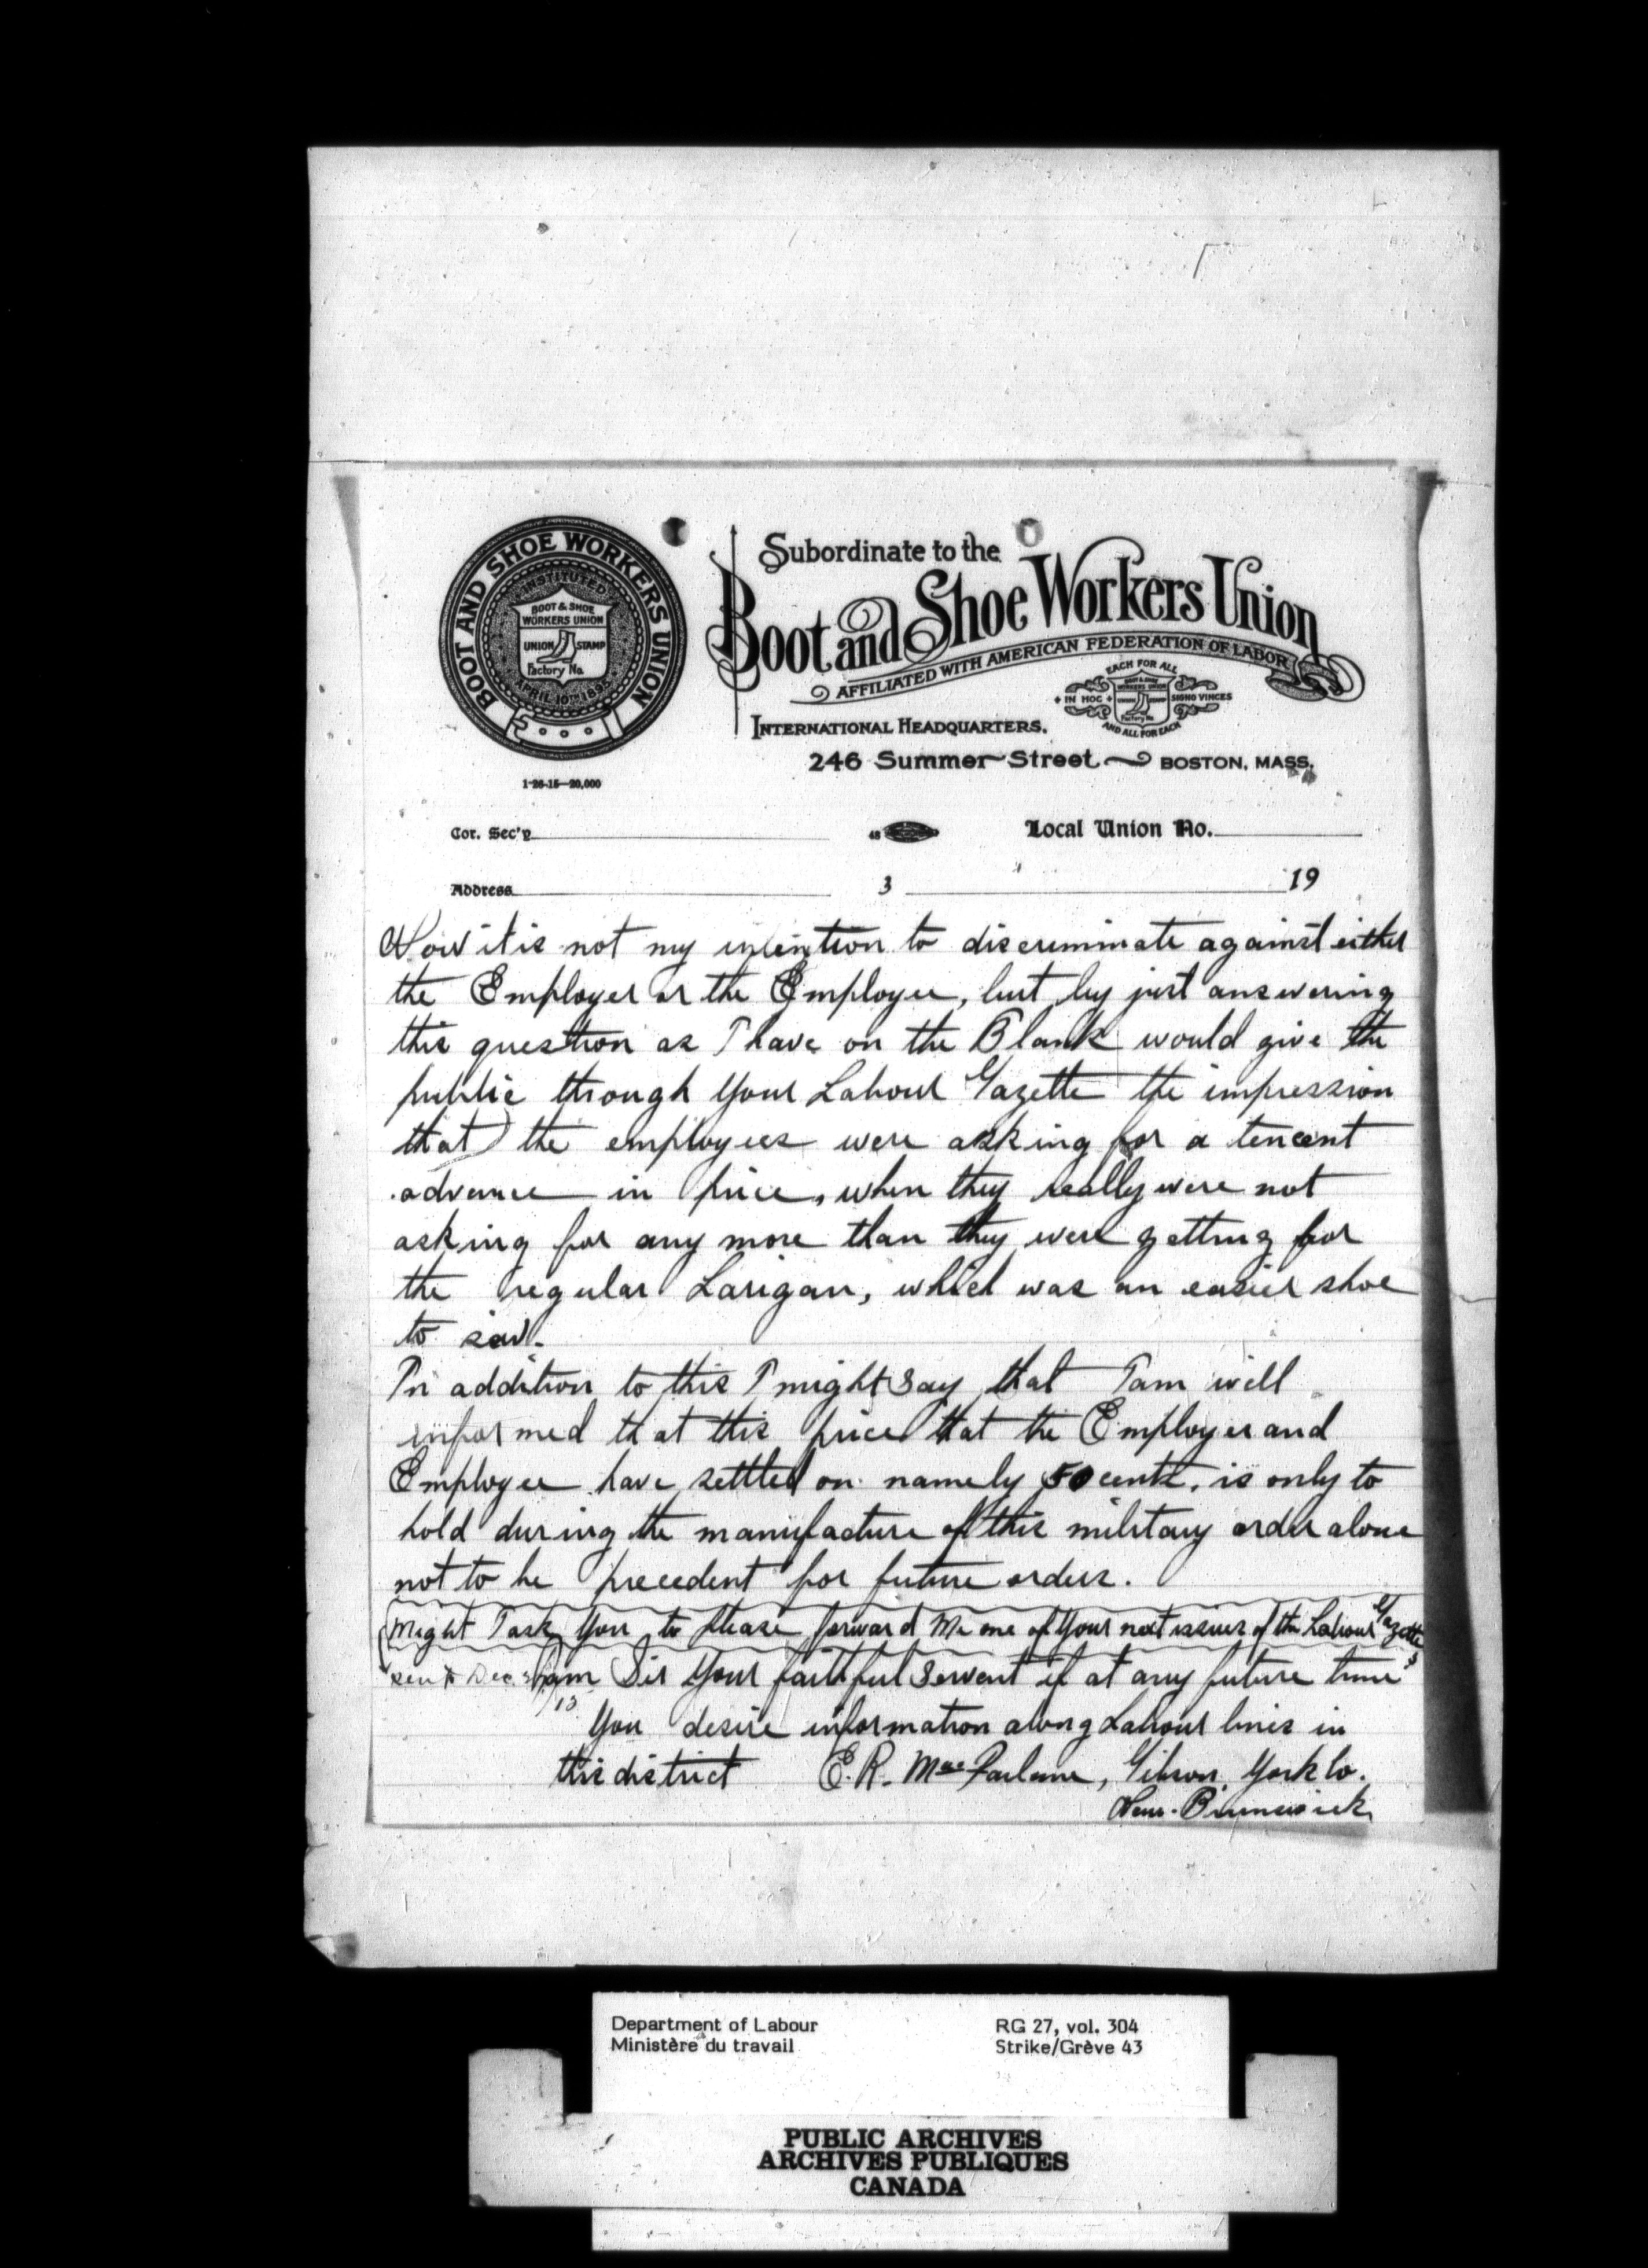 BOOT AND SHOE WORKERS UNION
INSTITUTED
BOOT & SHOE
WORKERS UNION
UNION STAMP
Factory No.
APRIL 10TH 189
1-26-15—20,000
Subordinate to the
Boot and Shoe Workers Union
AFFILIATED WITH AMERICAN FEDERATION OF LABOR
EACH FOR ALL
IN HOC SIGNO VINCES
BOOT & SHOE
WORKERS UNION
UNION STAMP
Factory No
AND ALL FOR EACH
INTERNATIONAL HEADQUARTERS.
246 Summer Street BOSTON, MASS.
Cor. Sec'y 48 Local Union No.
Address 3 19
Now it is not my intention to discriminate against either
the Employer or the Employee, but by just answering
this question as I have on the Blank would give the
public through your Labour Gazette the impression
that the employees were asking for a ten cent
advance in price, when they really were not
asking for any more than they were getting for
the regular Larigan, which was an easier shoe
to sew.
In addition to this I might say that I am well
informed that this price that the Employer and
Employee have settled on namely 50 cents, is only to
hold during the manufacture of this military order alone
not to be precedent for future orders.
Might I ask you to please forward me one of your next issues of the Labour Gazette
sent Dec.
I am Sir your faithful Servent if at any future time
You desire information along Labour lines in
this district E.R. MacFarlane, Gibson York Co.
New-Brunswick
Department of Labour RG 27, vol. 304
Ministère du travail Strike/Grève 43
PUBLIC ARCHIVES
ARCHIVES PUBLIQUES
CANADA